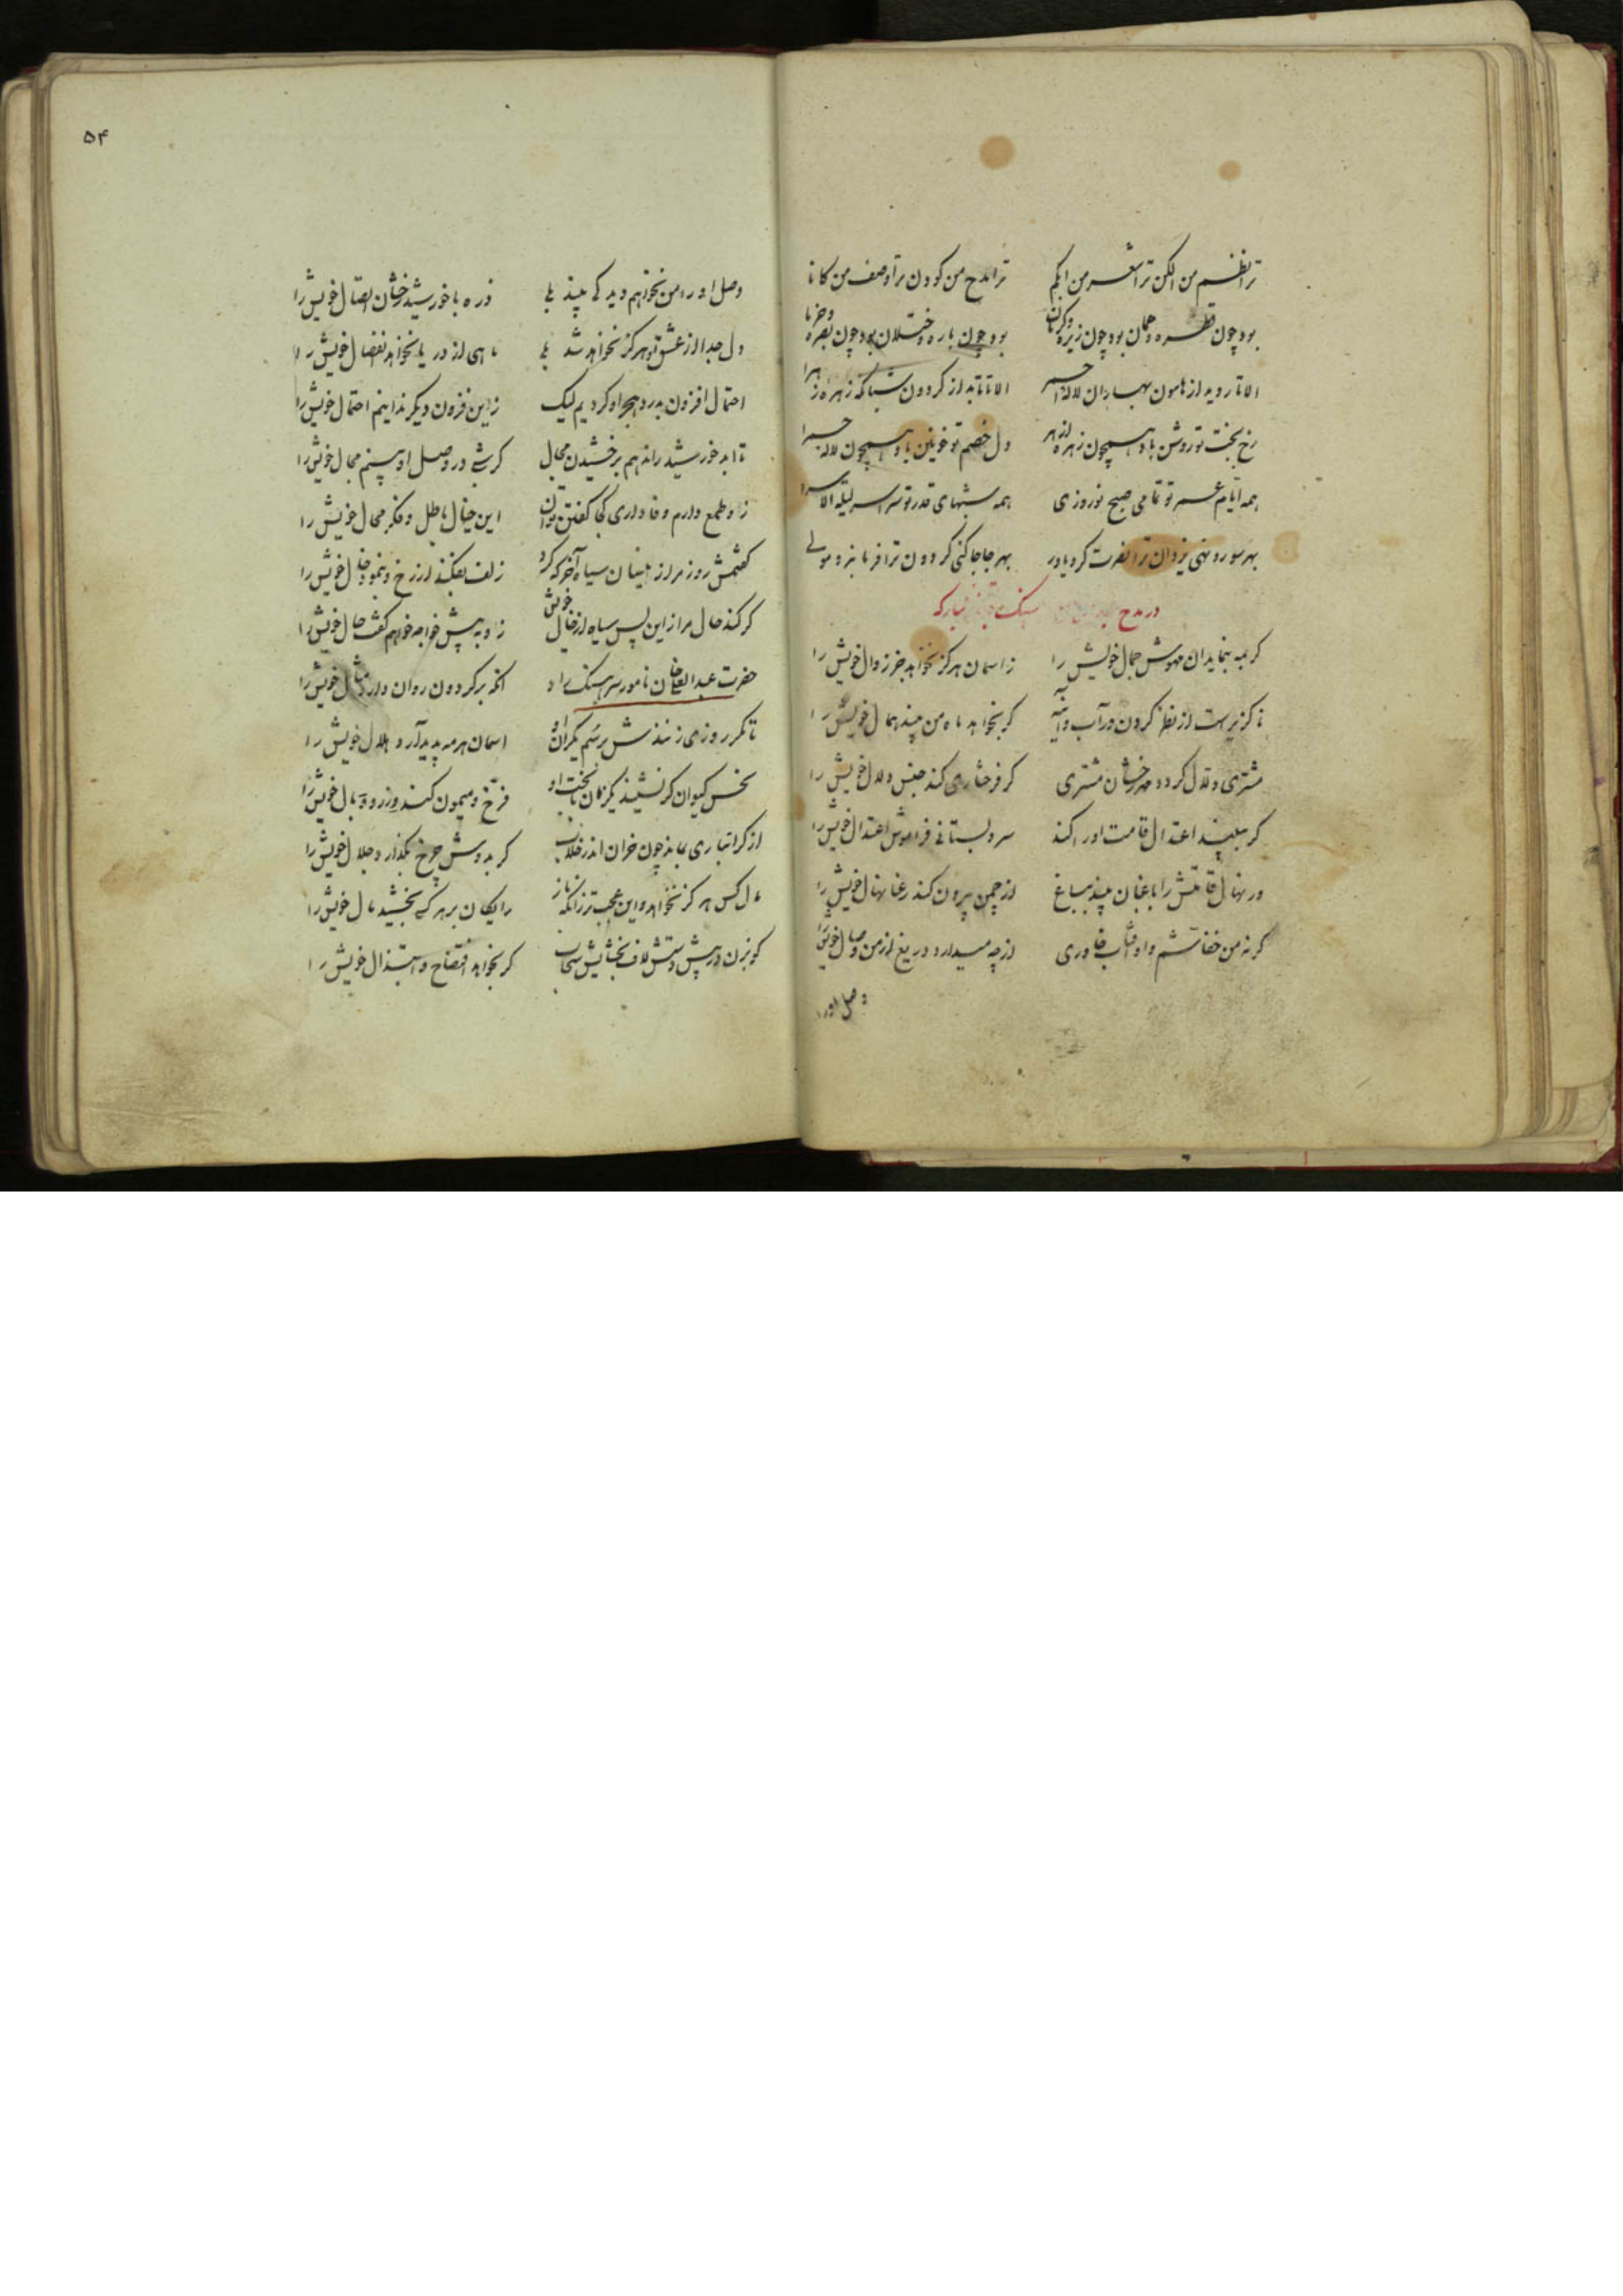 ترا نظم من الکن ترا شعر من ابکم ترا مدح من کودن ترا وصف من کانا
بود چون قطره و عمان بود چون زیره و کرمان بود چون باره و ختلان بود چون بصره و خرما
الا تا روید از هامون بهاران لاله حمرا الا تا تابد از کردون شبا که زهره زهرا
رخ بخت تو روشن باد همچون زهره ازهر دل خصم تو خونین باد همچون لاله حمرا
همه ایام عمر تو تمامی صبح نوروزی همه شبهای قدر تو سراسر لیلة الاسرا
بهر سو رو نهی یزدان ترا نصرت کرد یاور بهر جا جا کنی کردون ترا فرمانبر و مولی
در مدح
کر بمه بنماید ان مهوش جمال خویش را ز اسمان هرکز نخواهد جز زوال خویش را
ناکزیرست از نظر کردن در آب و آینه کر بخواهد ماه من بیند همال خویش را
مشتری دلال کردد مهر رخشان مشتری کر فرختاری کند جنس دلال خویش را
کر ببیند اعتدال قامت او را کند سرو بستانی فراموش اعتدال خویش را
ور نهال قامتش را باغبان بیند بباغ از چمن بیرون کند رعنا نهال خویش را
کر نه من خفاشم و او آفتاب خاوری از چه میدارد دریغ از من وصال خویش را
وصل او را
۵۴
وصل او را من نخواهم دید کی بیند بلی ذره با خورشید رخشان اتصال خویش را
دل جدا از عشق او هرکز نخواهد شد بلی ماهی از دریا نخواهد انفصال خویش را
احتمال افزون بدرد هجر او کردیم لیک زاین فزون دیکر ندانیم احتمال خویش را
تا ابد خورشید را ندهم برخشیدن مجال کر شبی در وصل او بینم مجال خویش را
زاو طمع دارم وفاداری کجا کفتن توان این خیال باطل و فکر محال خویش را
کفتمش روز مرا زاینسان سیاه آخر که کرد زلف بفکند از رخ و بنمود خال خویش را
کر کند حال مرا زاین پس سیاه از خال خویش زاو به پیش خواجه خواهم کفت حال خویش را
حضرت عبدالعلی خان نامور سرهنک راد انکه بر کردون روان دارد مثال خویش را
تا مکرر روزی زنندش بر سم یکران او اسمان هر مه پدید آرد هلال خویش را
نحس کیوان کر نشیند یکزمان با بخت او فرخ و میمون کند وزر و وبال خویش را
از کرانباری بماند چون خران اندر خلاب کر بدوش چرخ بکذارد جلال خویش را
مال کس هرکز نخواهد واین عجبتر زانکه باز رایکان بر هر کسی بخشید مال خویش را
کو مزن در پیش دستش لاف بخشایش سحاب کر نخواهد افتضاح و ابتذال خویش را